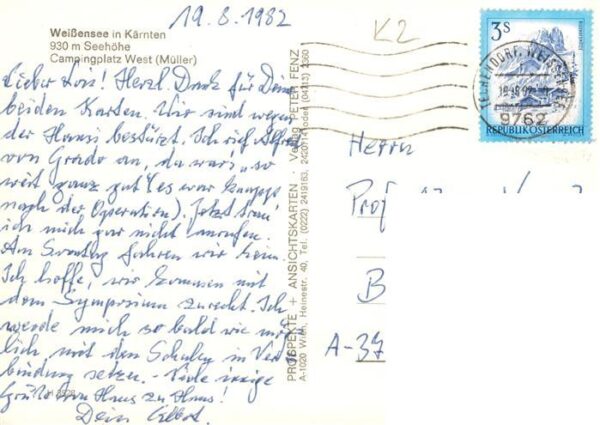 19. 8. 1982
K2
Weißensee in Kärnten
930 m Seehöhe
Campingplatz West (Müller)
Herzl. Dank für Deine
beiden Karten. Wir sind wegen
der Hansi bestürzt. Ich rief
von Grado an, da war's „so
weit ganz gut" (es war
nach der Operation). Jetzt trau'
ich mich gar nicht anrufen.
Am Sonntag fahren wir heim.
Ich hoffe, wir kommen mit
dem Symposium zurecht. Ich
werde mich so bald wie mög
lich mit den Schulen in Ver
bindung setzen. – Viele innige
Grüße von Haus zu Haus!
Dein
PROSPEKTE + ANSICHTSKARTEN · Verlag PETER FENZ
A-1020 Wien, Heinestr. 40, Tel. (0222) 2419163,
3 S
REPUBLIK ÖSTERREICH
9762
Herrn
Prof
B
A-37